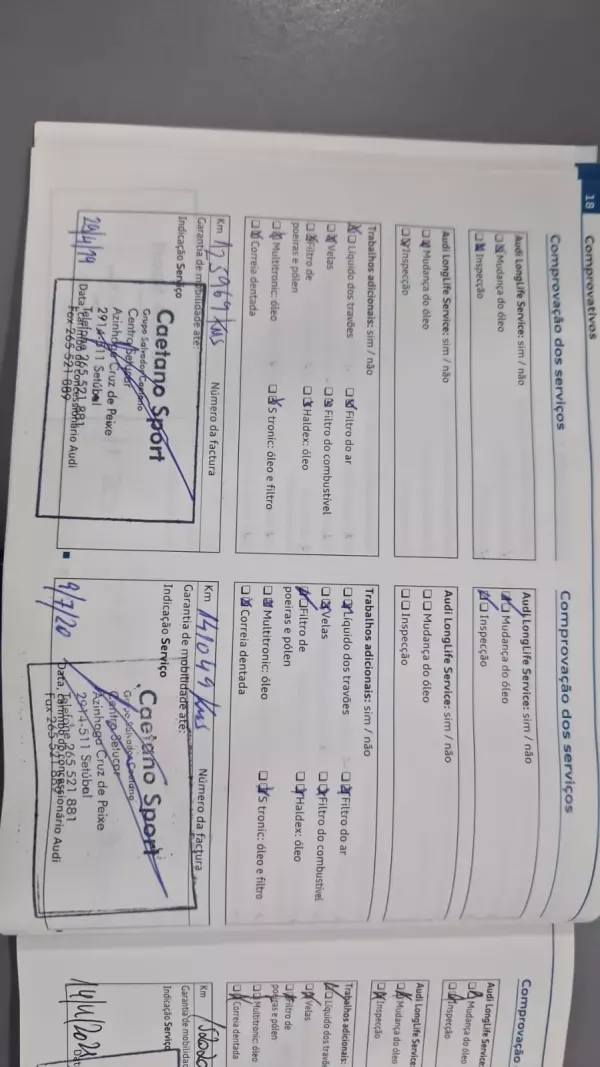 18 Comprovativos
Comprovação dos serviços
Audi LongLife Service: sim / não
Mudança do óleo
Inspecção
Audi LongLife Service: sim / não
Mudança do óleo
Inspecção
Trabalhos adicionais: sim / não
Líquido dos travões Filtro do ar
Velas Filtro do combustível
Filtro de Haldex: óleo
poeiras e pólen
Multitronic: óleo S tronic: óleo e filtro
Correia dentada
Km 125969 Kms Número da factura
Garantia de mobilidade até:
Indicação Serviço
Caetano Sport
Grupo Salvador Caetano
Centro Setúbal
Azinhaga Cruz de Peixe
2914-511 Setúbal
Telefone 265 521 881
Fax 265 521 889
Data, carimbo do concessionário Audi
Comprovação dos serviços
Audi LongLife Service: sim / não
Mudança do óleo
Inspecção
Audi LongLife Service: sim / não
Mudança do óleo
Inspecção
Trabalhos adicionais: sim / não
Líquido dos travões Filtro do ar
Velas Filtro do combustível
Filtro de Haldex: óleo
poeiras e pólen
Multitronic: óleo S tronic: óleo e filtro
Correia dentada
Km 141049 Kms Número da factura
Garantia de mobilidade até:
Indicação Serviço
Caetano Sport
Grupo Salvador Caetano
Centro Setúbal
Azinhaga Cruz de Peixe
2914-511 Setúbal
Telefone 265 521 881
Fax 265 521 889
9/7/20
Data, carimbo do concessionário Audi
Comprovação
Audi LongLife Service:
Mudança do óleo
Inspecção
Audi LongLife Service:
Mudança do óleo
Inspecção
Trabalhos adicionais:
Líquido dos travõe
Velas
Filtro de
poeiras e pólen
Multitronic: óleo
Correia dentada
Km
Garantia de mobilidad
Indicação Serviço